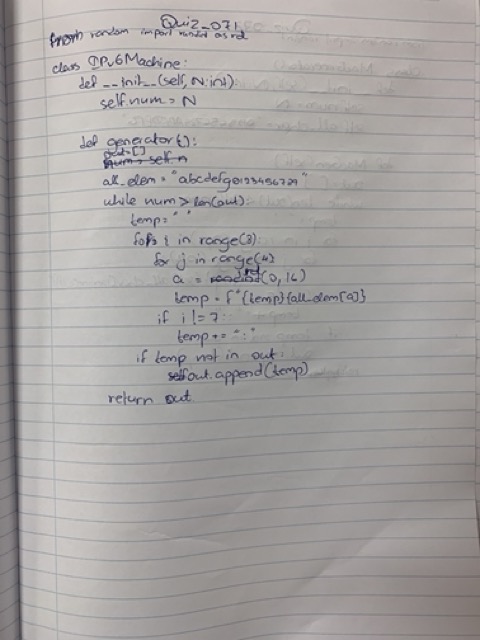 Quiz_071
from random import randint as rd
class IPv6Machine:
def __init__(self, N:int):
self.num = N
def generator():
out=[]
num = self.n
all_elem = "abcdefg0123456789"
while num > len(out):
temp=" "
for i in range(8):
for j in range(4)
a = rd(0, 16)
temp = f"{temp}{all_elem[a]}
if i != 7:
temp += ":"
if temp not in out:
out.append(temp)
return out